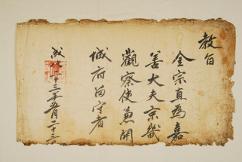 教旨
金宗直爲嘉
善大夫京畿
觀察使兼開
城府留守者
成化二十三年五月二十三